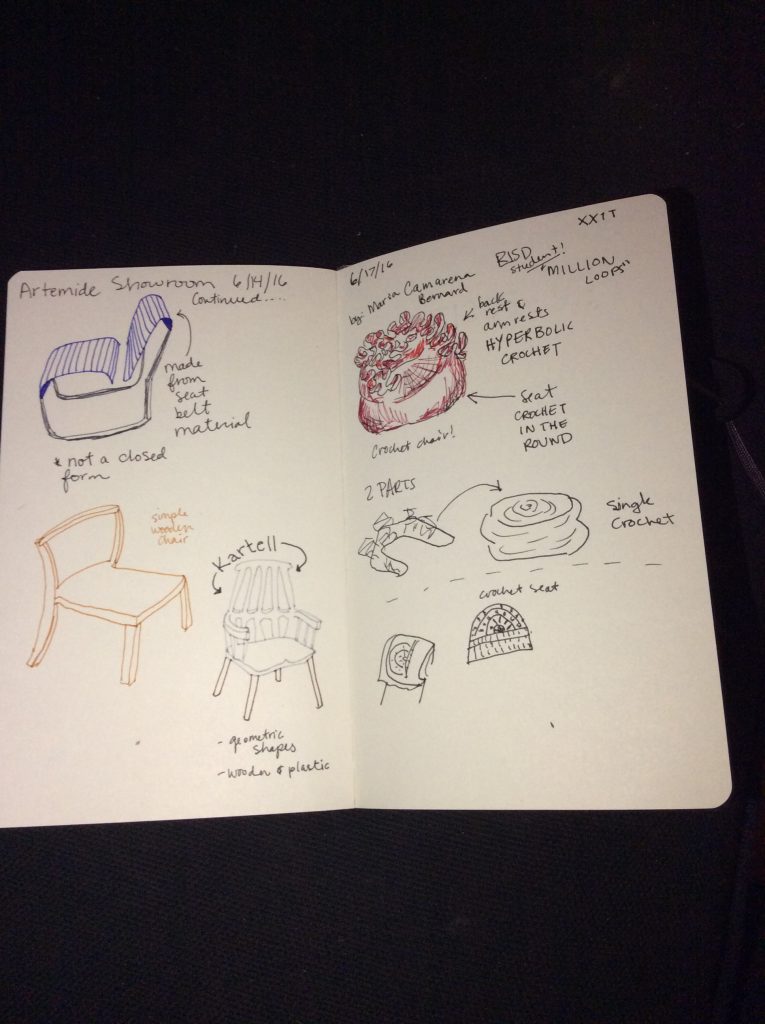 Artemide Showroom 6/14/16
Continued....
made
from
seat
belt
material
* not a closed
form
simple
wooden
chair
Kartell
- geometric
shapes
- wooden & plastic
6/17/16
XXIT
RISD
student!
"MILLION
LOOPS"
by: Maria Camarena
Bernard
back
rest &
armrests
HYPERBOLIC
CROCHET
seat
CROCHET
IN THE
ROUND
Crochet chair!
2 PARTS
single
crochet
crochet seat